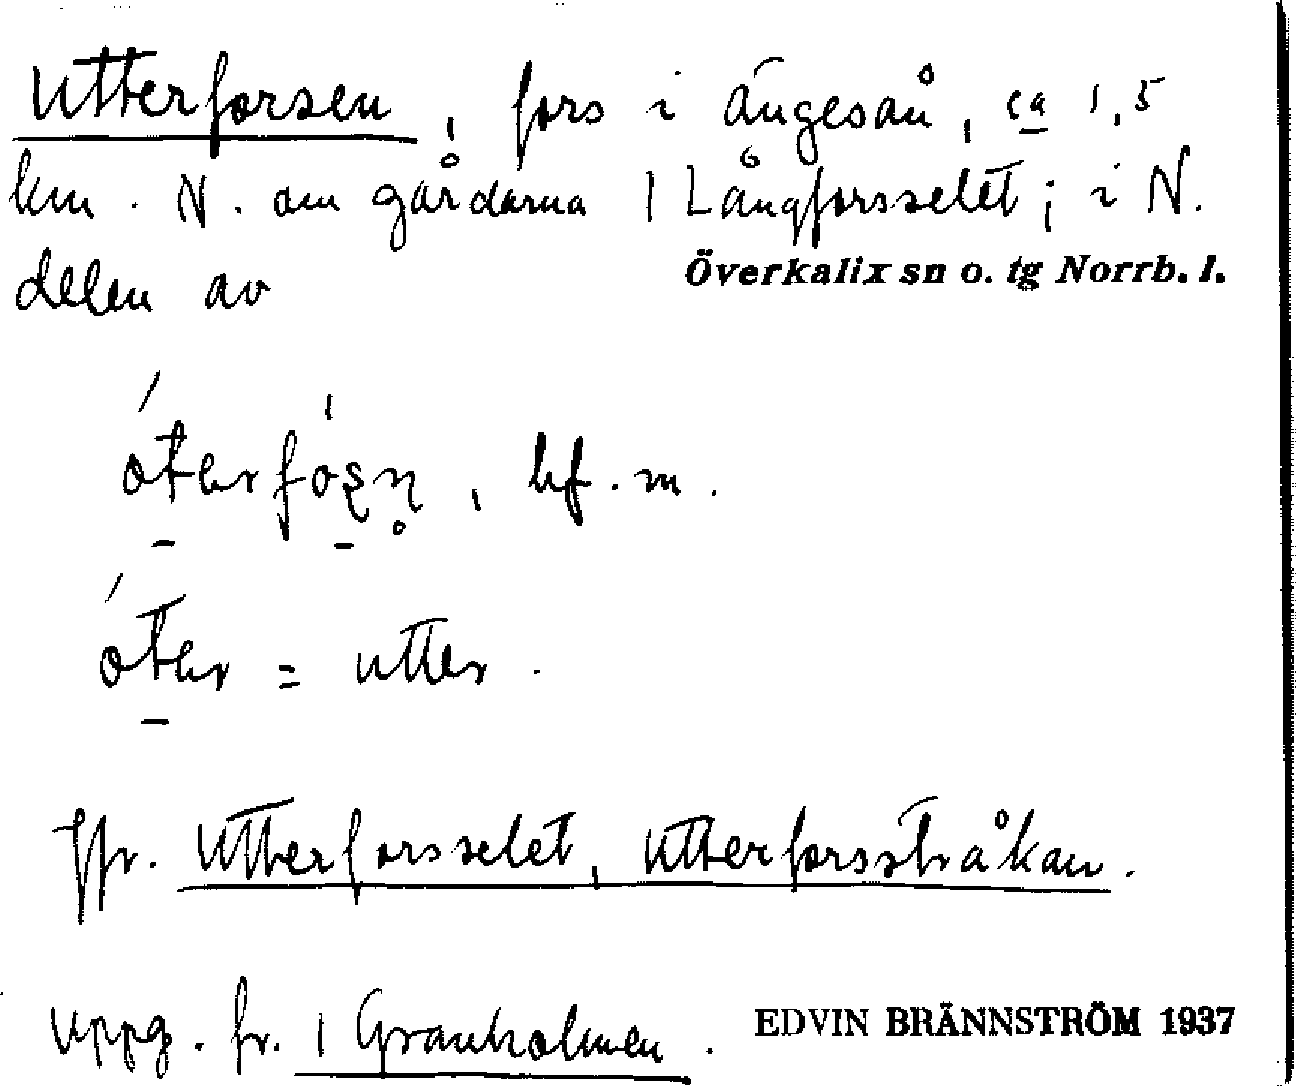 Utterforsen, fors i Ängesån, ca 1,5
km. N. om gårdarna 1 Långforsselet; i N.
delen av Överkalix sn o. tg Norrb. l.
óterfóʂn̥, bf. m.
óter = utter.
Jfr. Utterforsselet, Utterforsstråkan.
Uppg. fr. 1 Granholmen. EDVIN BRÄNNSTRÖM 1937